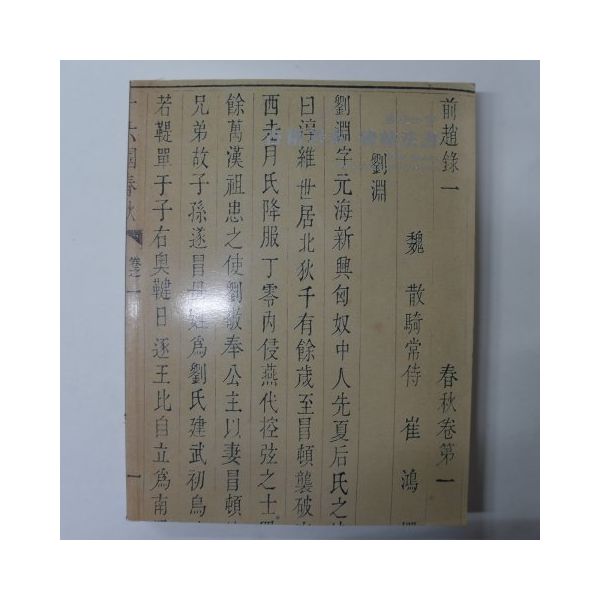 前趙錄一 春秋卷第一
魏 散騎常侍 崔鴻
劉淵
劉淵字元海新興匈奴中人先夏后氏之
曰淳維世居北狄千有餘歲至冒頓襲破
西走月氏降服丁零內侵燕代控弦之士
餘萬漢祖患之使劉敬奉公主以妻冒頓
兄弟故子孫遂冒母姓爲劉氏建武初烏
若鞮單于子右奧鞬日逐王比自立爲南
十六國春秋 卷之一 一